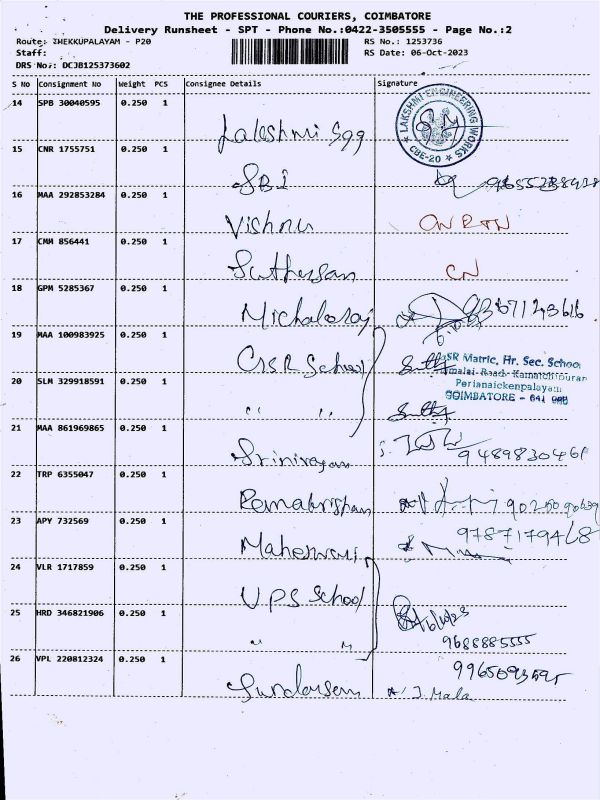 THE PROFESSIONAL COURIERS, COIMBATORE
Delivery Runsheet - SPT - Phone No.:0422-3505555 - Page No.:2
Route: THEKKUPALAYAM - P20 RS No.: 1253736
Staff: RS Date: 06-Oct-2023
DRS No.: DCJB125373602
S No Consignment No Weight PCS Consignee Details Signature
14 SPB 30040595 0.250 1
Lakshmi Egg LAKSHMI ENGINEERING WORKS CBE-20
15 CNR 1755751 0.250 1
SBI
16 MAA 292853284 0.250 1
Vishnu CN RTN
17 CMM 856441 0.250 1
Suthersan CN
18 GPM 5285367 0.250 1
Michaleraj
19 MAA 100983925 0.250 1
CSR School SR Matric. Hr. Sec. School
Perianaickenpalayam
COIMBATORE - 641
20 SLM 329918591 0.250 1
" "
21 MAA 861969865 0.250 1
Srinivasan
22 TRP 6355047 0.250 1
Ramakrishan
23 APY 732569 0.250 1
Maheswari 9787179468
24 VLR 1717859 0.250 1
UPS School
25 HRD 346821906 0.250 1
" " 9688885555
26 VPL 220812324 0.250 1
Sundarsan J. Mala